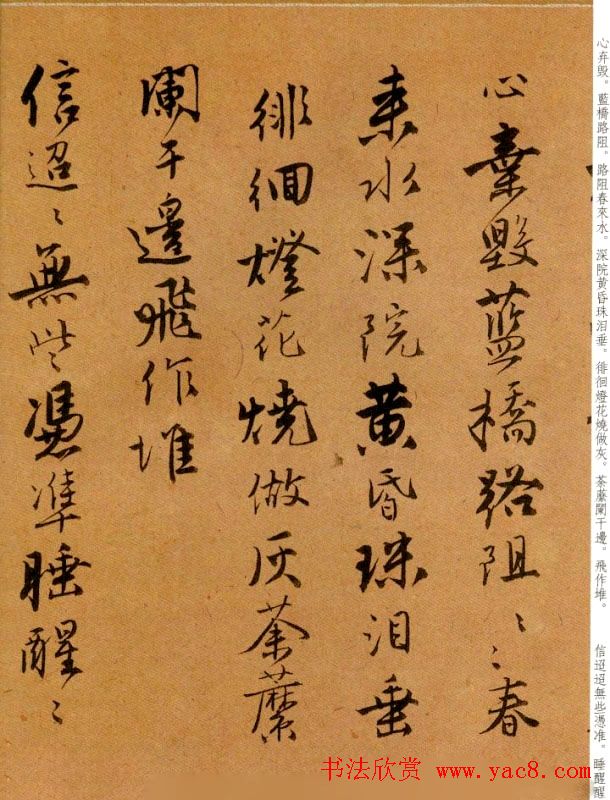 心弃毁藍橋路阻〻春
来水深院黄昏珠泪垂
徘徊燈花燒做灰荼蘼
闌干邊飛作堆
信迢〻無些憑準睡醒〻
心弃毁。藍橋路阻。路阻春來水。深院黄昏珠泪垂。徘徊燈花燒做灰。荼蘼闌干邊。飛作堆。
信迢迢無些憑准。睡醒醒
书法欣赏 www.yac8.com